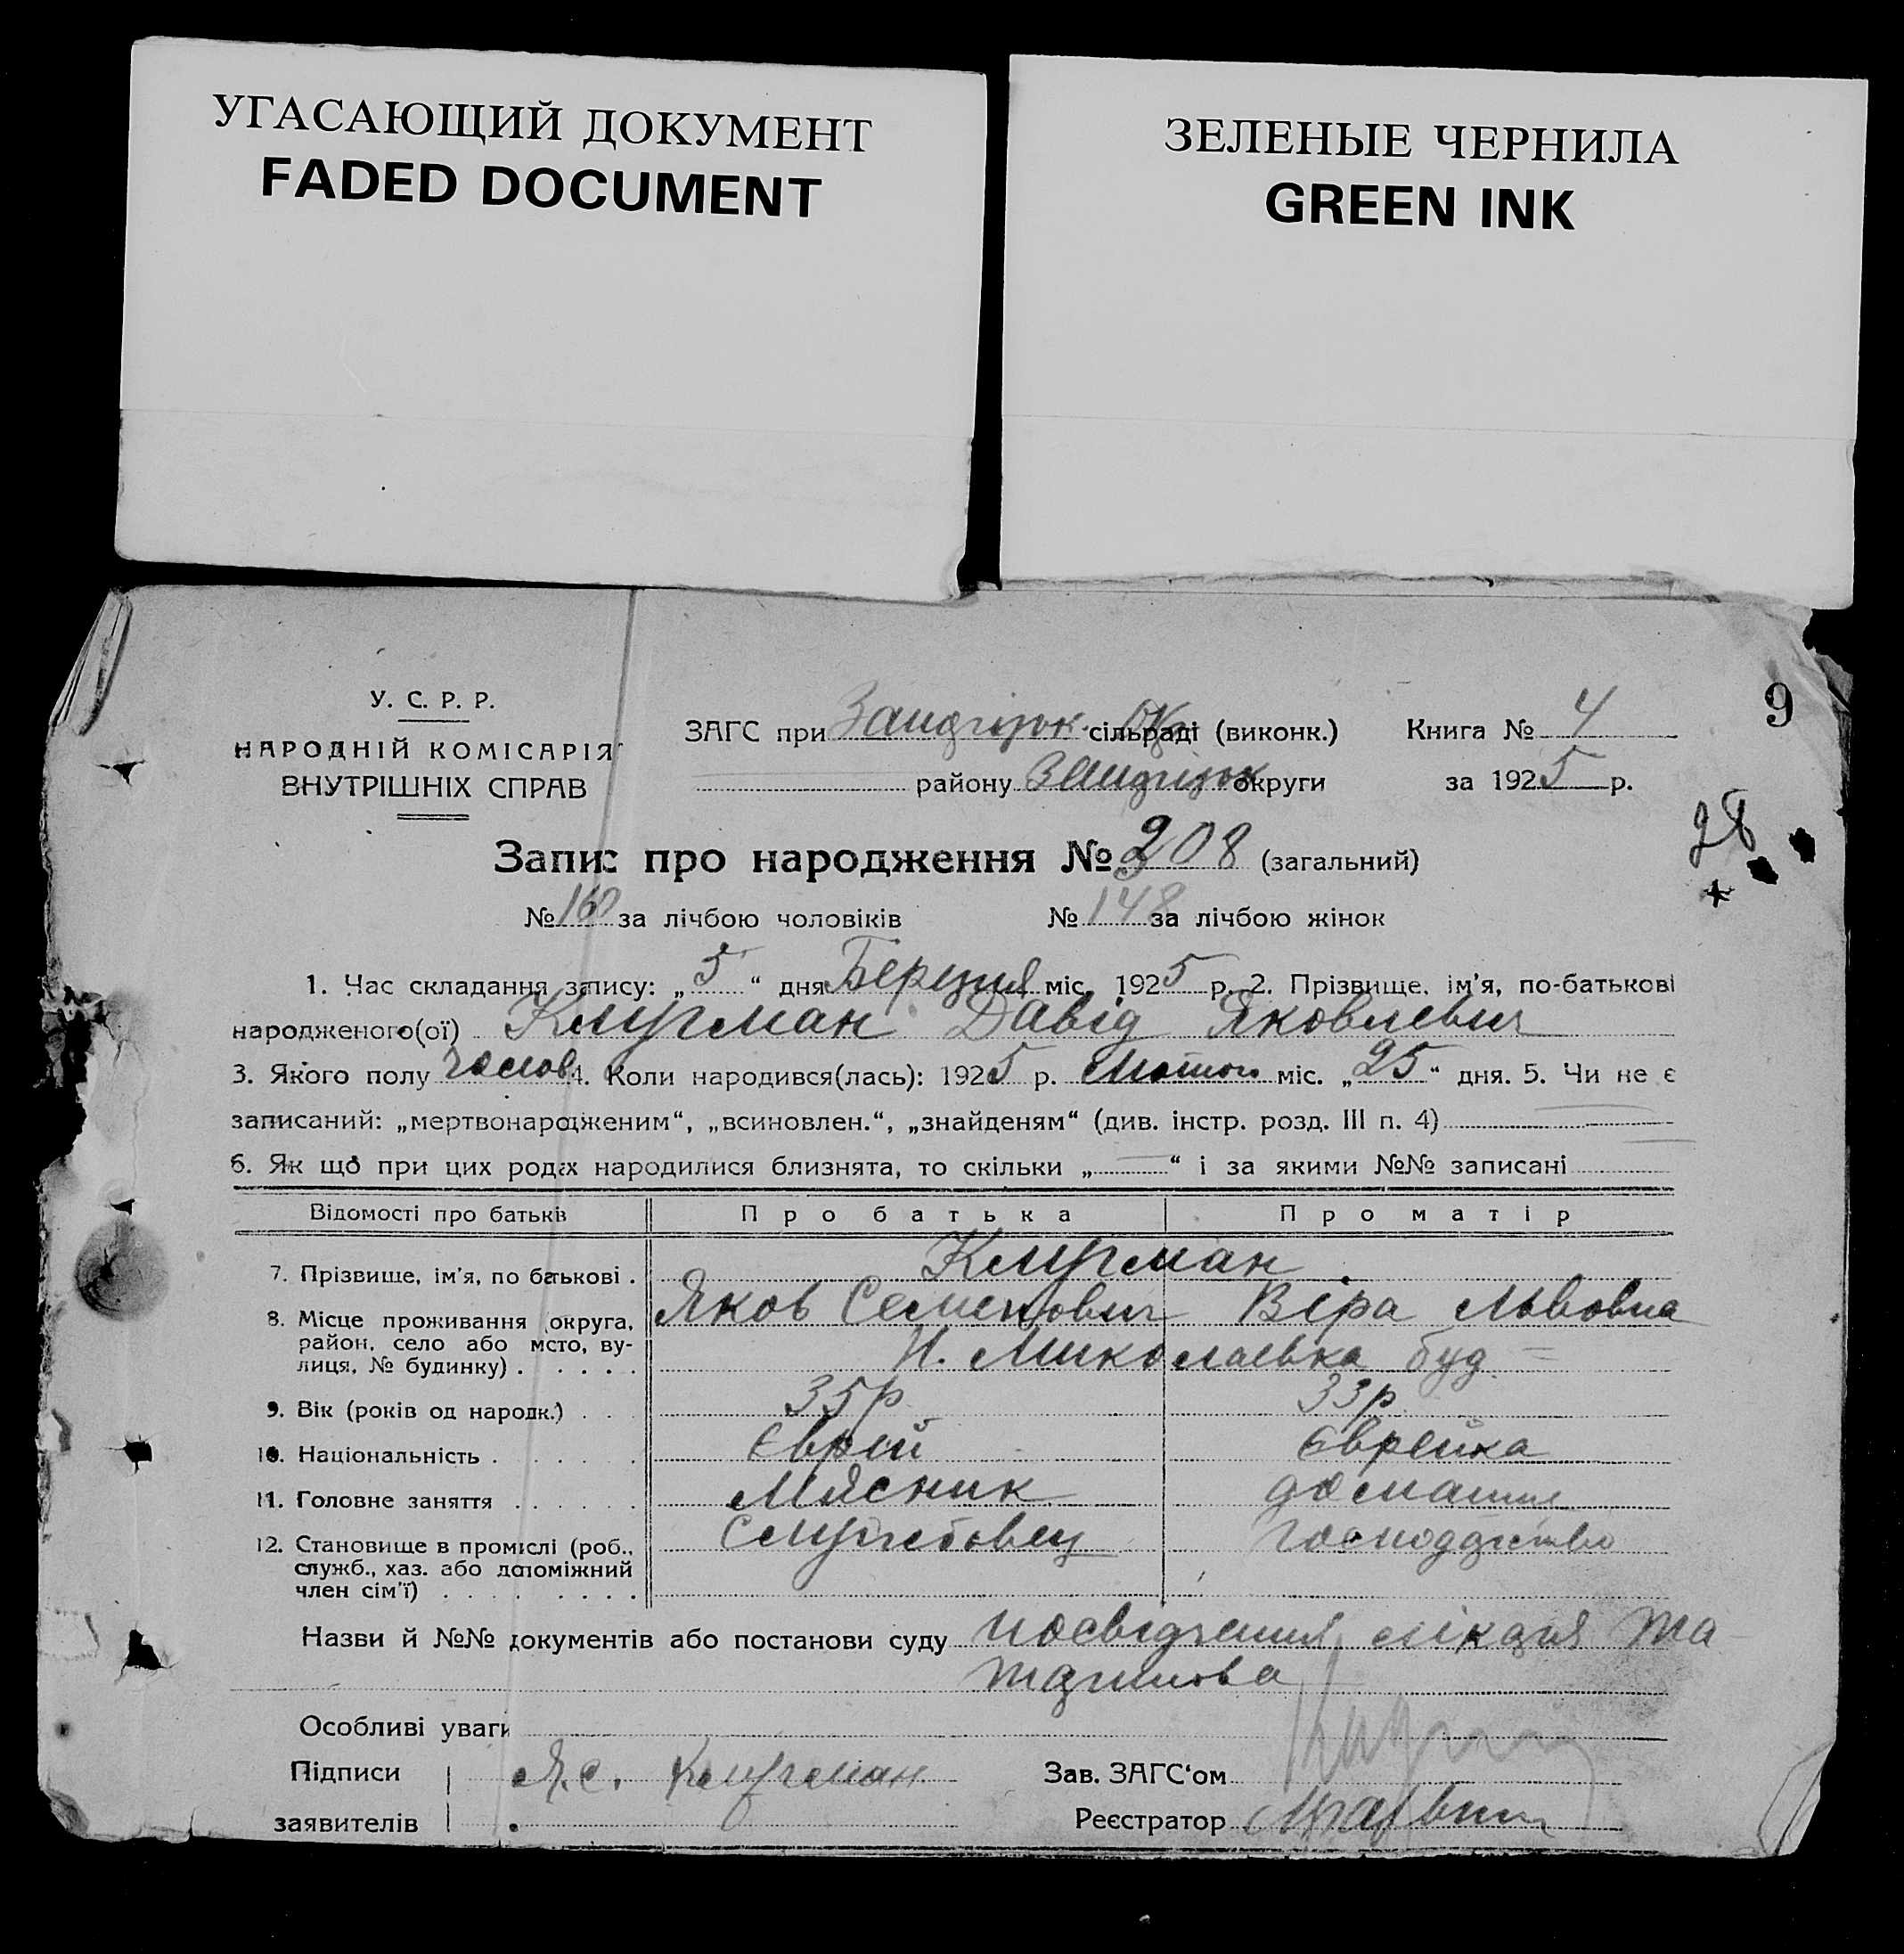 УГАСАЮЩИЙ ДОКУМЕНТ
FADED DOCUMENT
ЗЕЛЕНЫЕ ЧЕРНИЛА
GREEN INK
9
У. С. Р. Р.
НАРОДНІЙ КОМІСАРІЯ
ВНУТРІШНІХ СПРАВ
ЗАГС при сільраді (виконк.) Книга № 4
району округи за 1925 р.
28
Запис про народження № 308 (загальний)
№ 160 за лічбою чоловіків № 148 за лічбою жінок
1. Час складання запису: „5“ дня Березня міс. 1925 р. 2. Прізвище, ім'я, по-батькові
народженого(ої) Клугман Давід Яковлевич
3. Якого полу чолов 4. Коли народився(лась): 1925 р. Лютого міс. „25“ дня. 5. Чи не є
записаний: „мертвонародженим“, „всиновлен.“, „знайденям“ (див. інстр. розд. III п. 4)
6. Як що при цих родах народилися близнята, то скільки „ “ і за якими №№ записані
Відомості про батьків Про батька Про матір
7. Прізвище, ім'я, по батькові . Клугман
Яков Семенович Віра Львовна
8. Місце проживання (округа,
район, село або місто, ву-
лиця, № будинку) . . . . . Н. Миколаевка буд =
9. Вік (років од народж.) . . . 35р 33р
10. Національність . . . . . . Єврей Єврейка
11. Головне заняття . . . . . . Мясник домашнє
12. Становище в промислі (роб.,
служб., хаз. або допоміжний
член сім'ї) . . . . . . . . господарство
Назви й №№ документів або постанови суду посвідчення лікаря та
Особливі уваги
Підписи Я. С. Клугман Зав. ЗАГС‘ом
заявителів Реєстратор